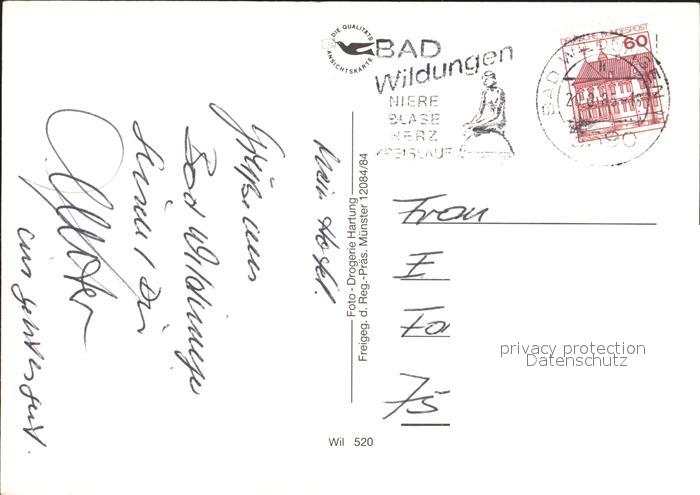 DIE QUALITÄTS
ANSICHTSKARTE
BAD
Wildungen
NIERE
BLASE
HERZ
KREISLAUF
DEUTSCHE BUNDESPOST
60
BAD WILDUNGEN
3590
Mein Hotel.
Grüße aus
Bad Wildungen
Foto - Drogerie Hartung
Freigeg. d. Reg.-Präs. Münster 12084/84
Frau
E
75
privacy protection
Datenschutz
Wil 520